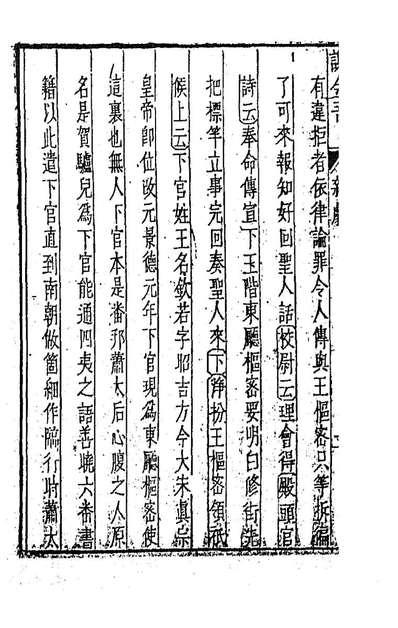 有違拒者依律論罪今人傳與王樞密只等拆
了可來報知好回聖人話校尉云理會得殿頭官
詩云奉命傳宣下玉階東廳樞密要明白修街
把標竿立事完回奏聖人來下淨扮王樞密領祗
候上云下官姓王名欽若字昭吉方今大宋真宗
皇帝即位改元景德元年下官現為東廳樞密使
這裏也無人下官本是番邦蕭太后心腹之人原
名是賀驢兒為下官能通四夷之語善曉六番書
籍以此遣下官直到南朝做箇細作臨行時蕭太